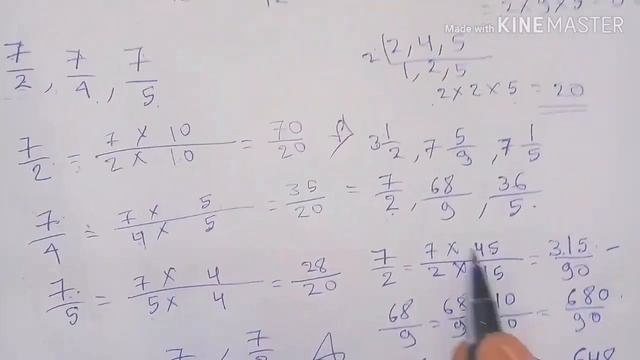 Made with KINEMASTER
7/2, 7/4, 7/5
2(2, 4, 5
1, 2, 5
2 x 2 x 5 = 20
7/2 = 7 x 10 / 2 x 10 = 70/20
7/4 = 7 x 5 / 4 x 5 = 35/20
7/5 = 7 x 4 / 5 x 4 = 28/20
3 1/2, 7 5/9, 7 1/5
= 7/2, 68/9, 36/5
7/2 = 7 x 45 / 2 x 45 = 315/90
68/9 = 680/90
648